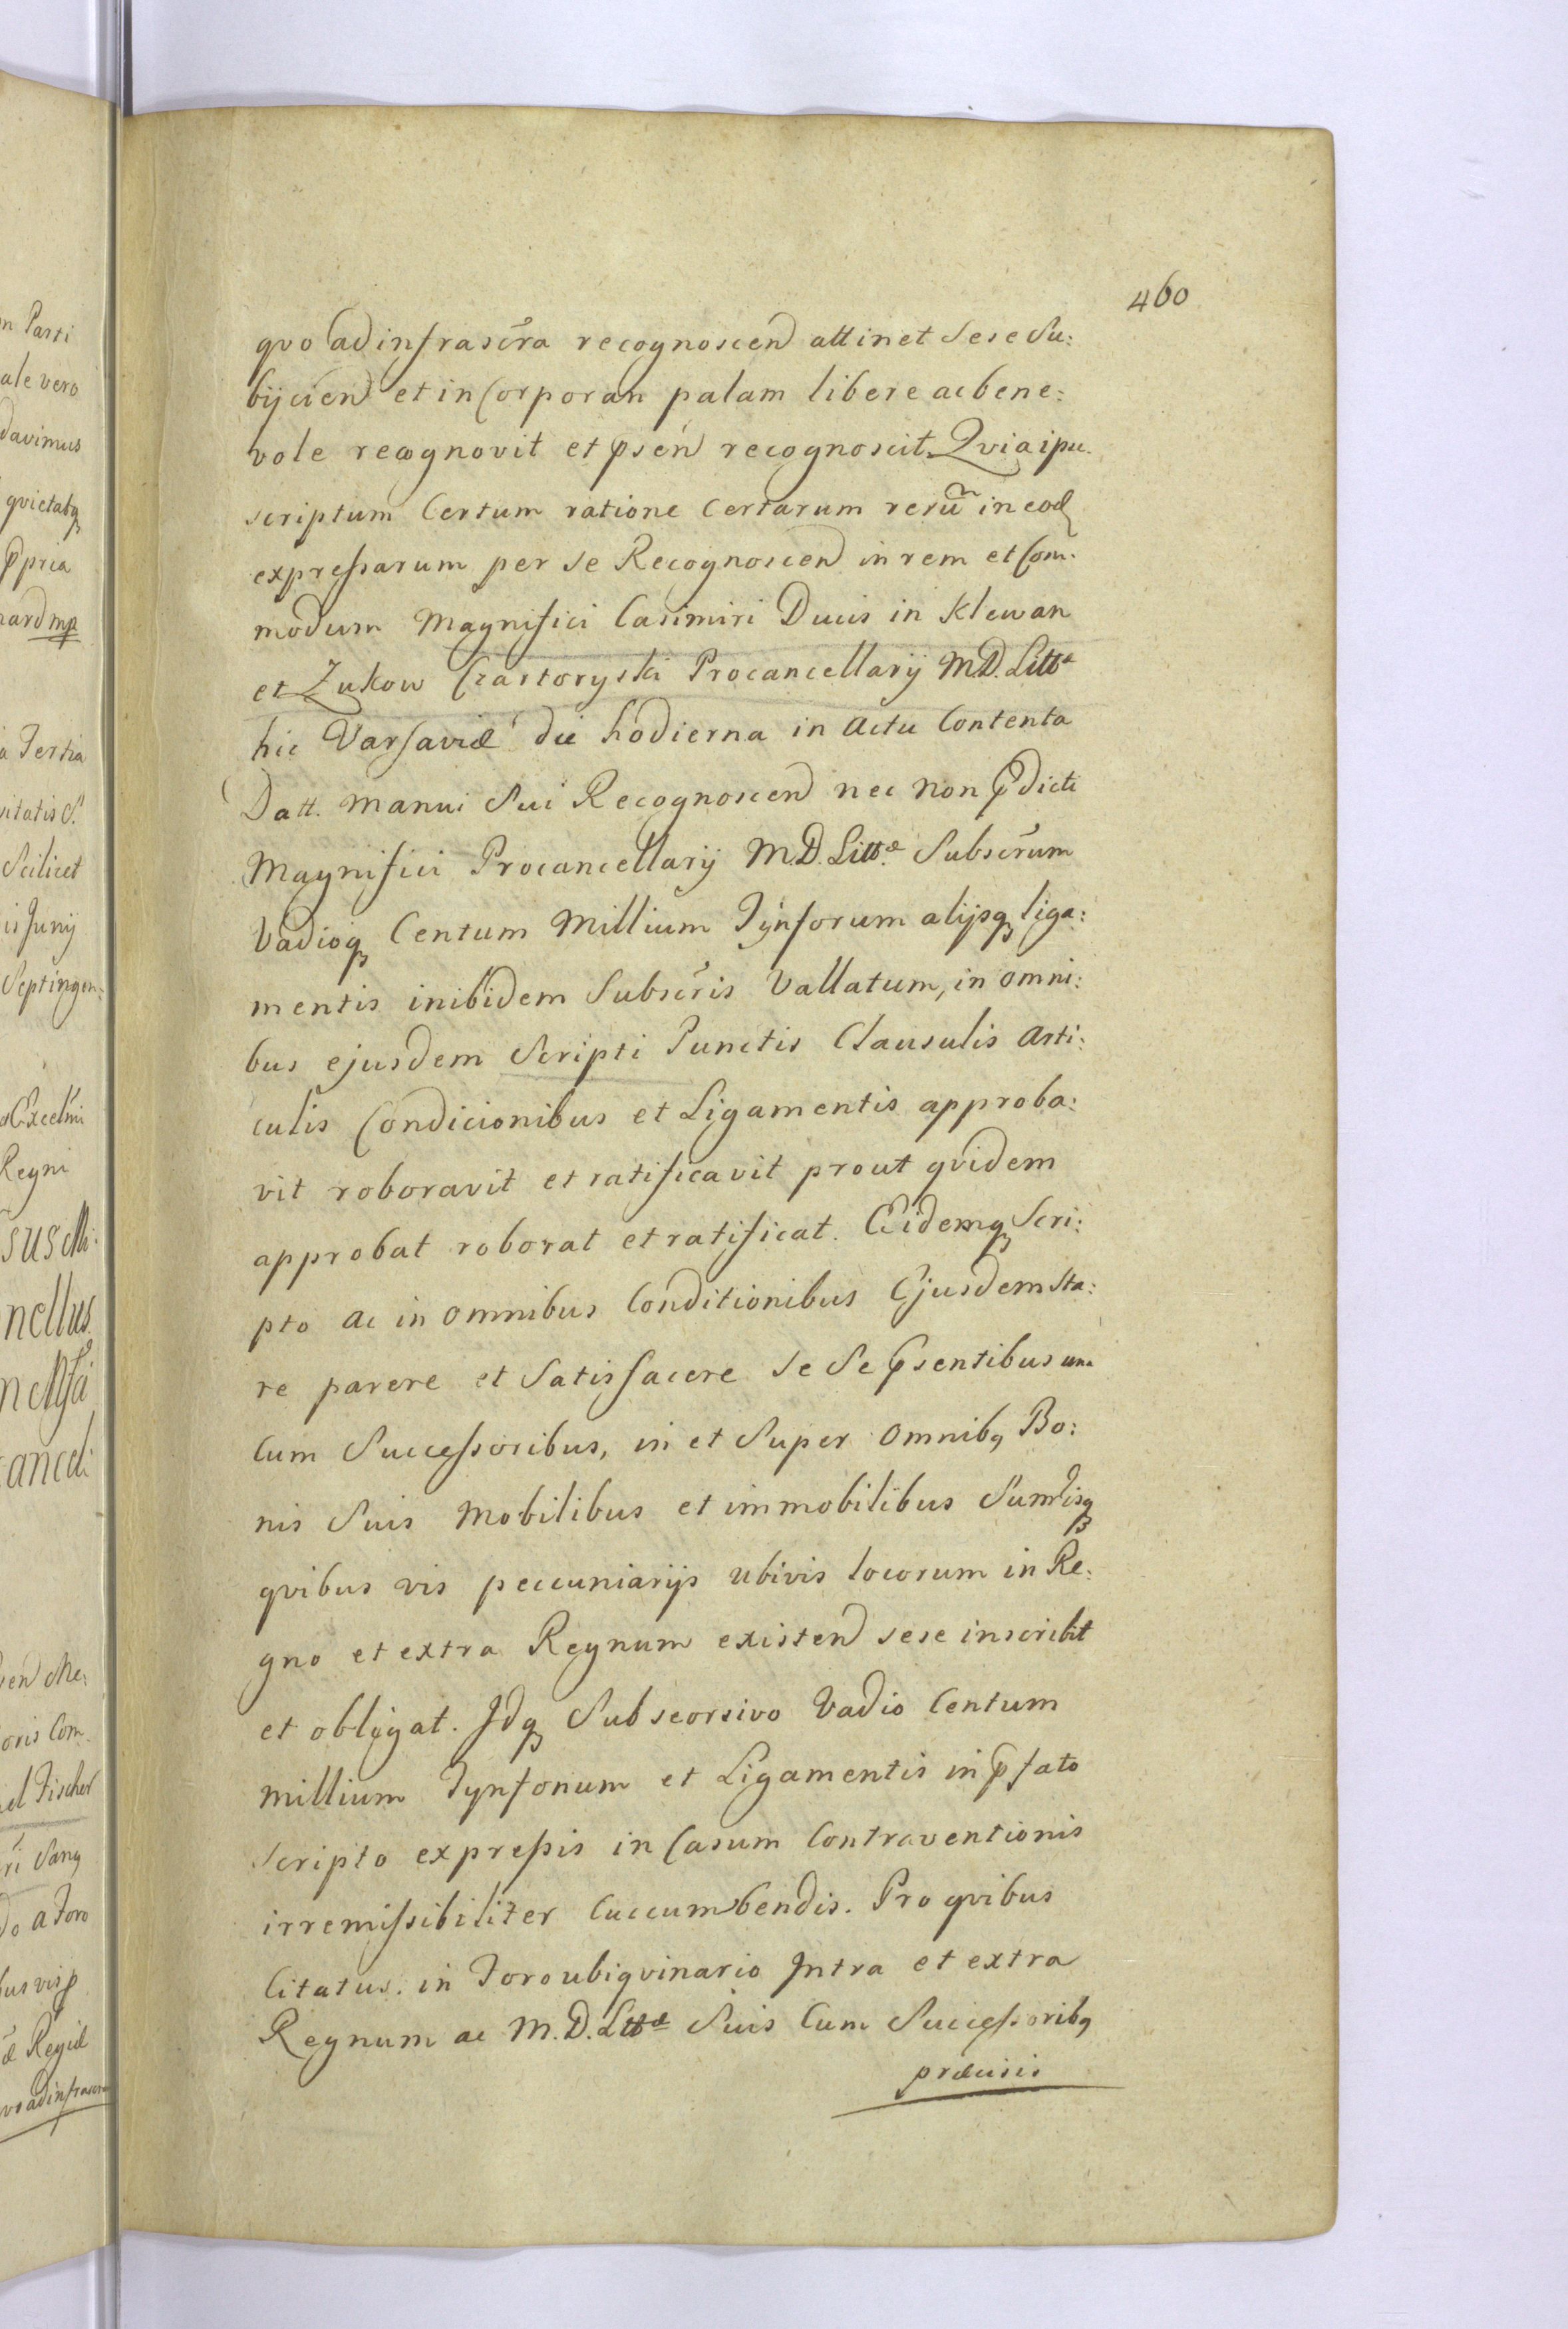 460
quo ad infrascr̃a recognoscend attinet Sese Su:
bijcien̄d et in Corporan palam libere ac bene:
vole recognovit et p̱sen̄d recognoscit. Qvia ipu.
scriptum Certum ratione Certarum rerũ in eod
expreſsarum per se Recognoscend in rem et Com.
modum Magnifici Casimiri Ducis in Klewan
et Zukow Czartoryski Procancellarij M.D. Littæ
hic Varsaviæ die hodierna in Actu Contenta
Datt. manui Sui Recognoscend nec non p̱dicti
Magnifici Procancellarij M.D. Littæ Subscr̃um
Vadioq́ Centum Millium Tynforum alijsq́ liga:
mentis inibidem Subscr̃is Vallatum, in omni:
bus ejusdem Scripti Punctis Clausulis Arti:
culis Condicionibus et Ligamentis approba:
vit roboravit et ratificavit prout qvidem
approbat roborat et ratificat. Eidemq́ Scri:
pto ac in omnibus Conditionibus Ejusdem Sta:
re parere et Satisfacere se Se p̱sentibus una
cum Succeſsoribus, in et Super omnibq Bo:
nis Suis Mobilibus et immobilibus Sum̃isq́
qvibus vis peccuniarijs ubivis locorum in Re:
gno et extra Regnum existend sese inscribit
et obligat. Idq́ Sub seorsivo Vadio Centum
millium Tynfonum et Ligamentis in p̱fato
scripto expreſsis in Casum Contraventionis
irremiſsibiliter Cuccumbendis. Pro qvibus
Citatus. in Foro ubiqvinario Intra et extra
Regnum ac M.D. Littæ Suis Cum Succeſsoribq
præcisis